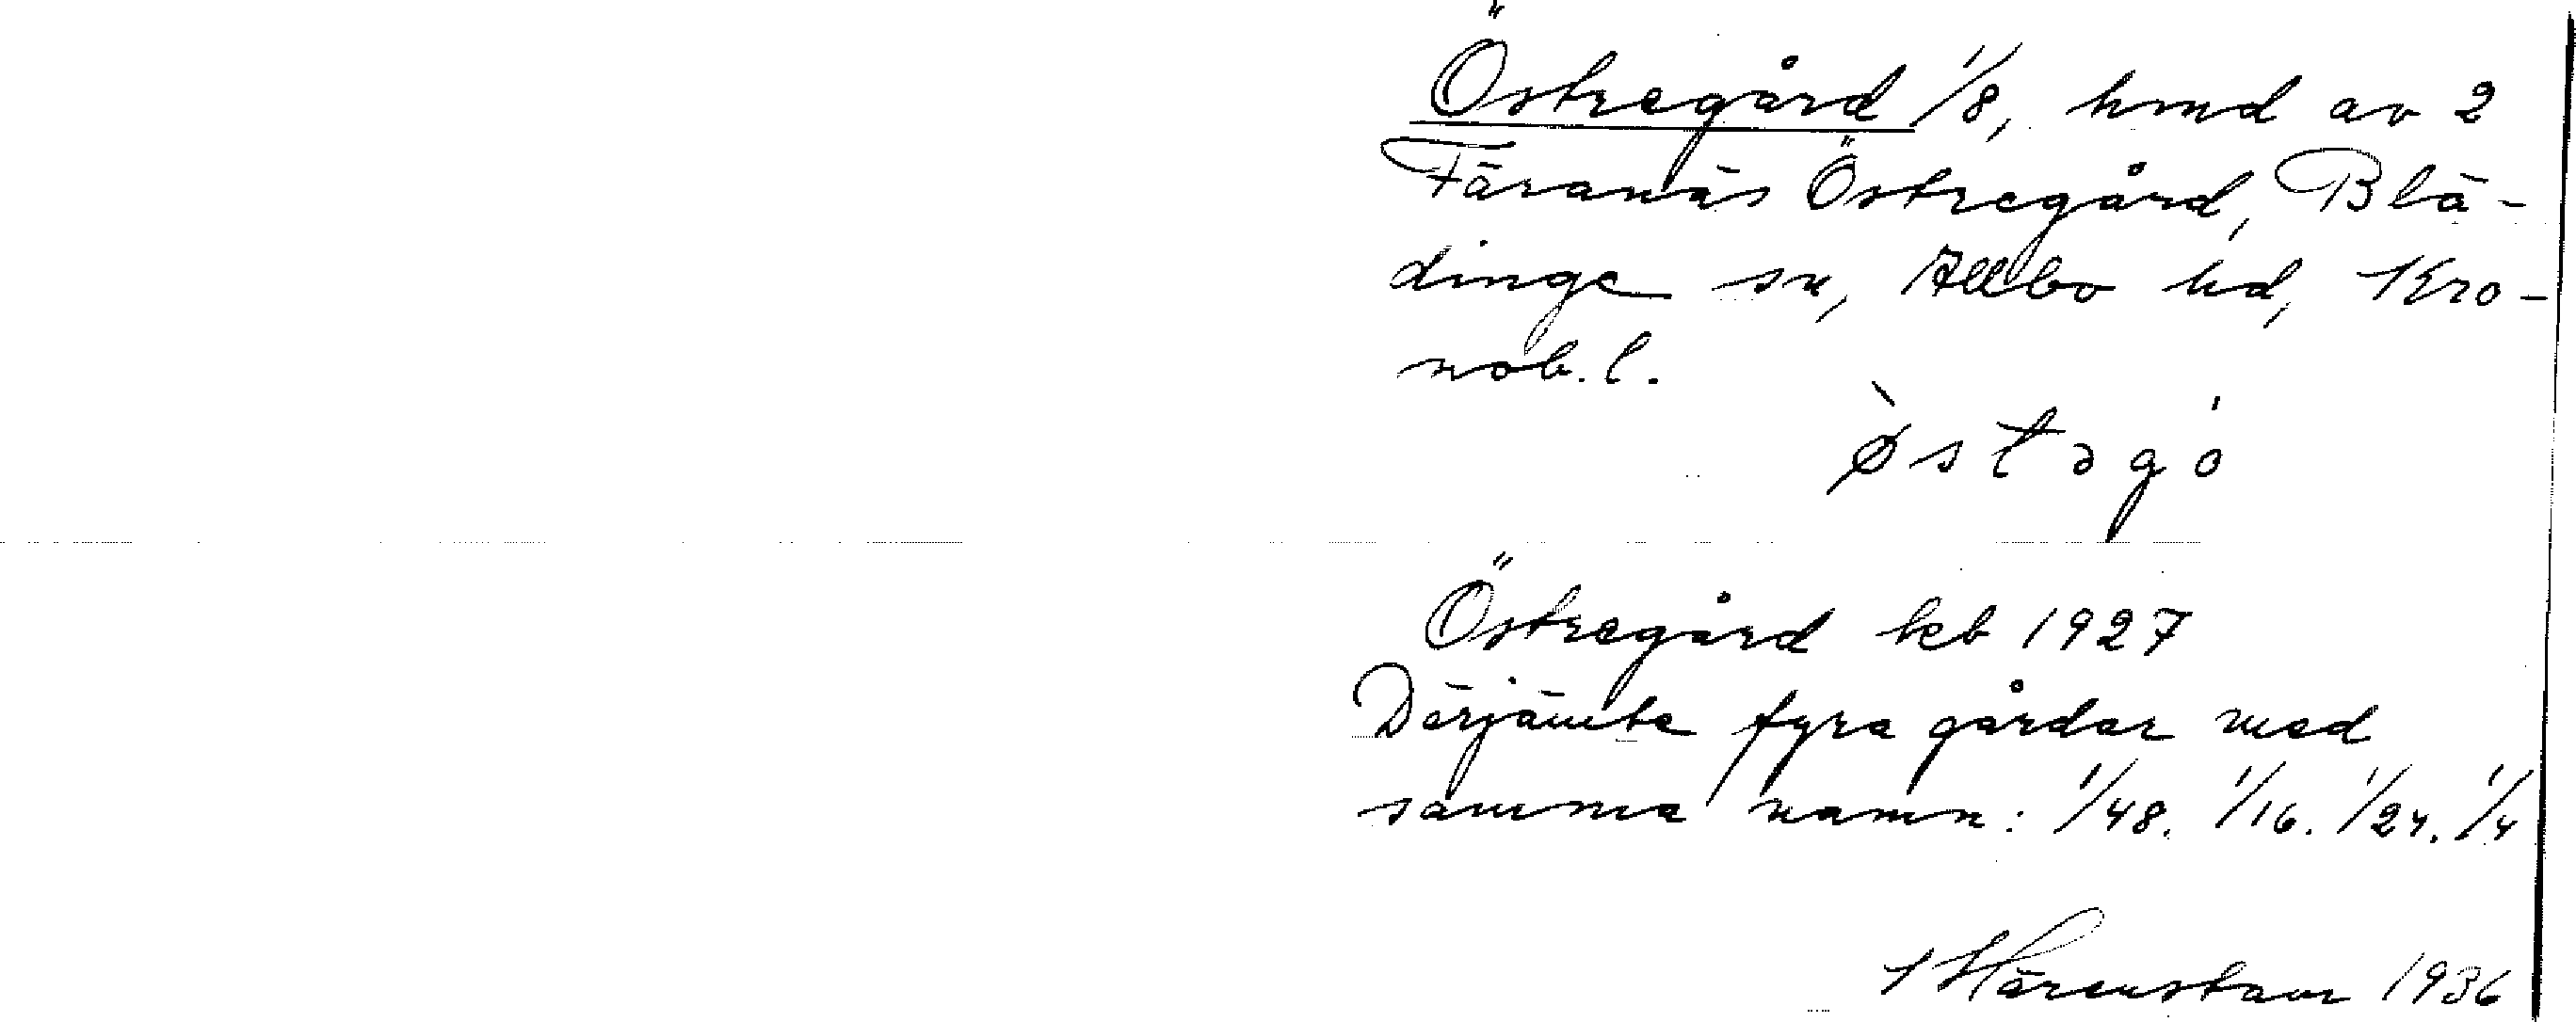 Östregård 1/8, hmd av 2
Färanäs Östregård, Blä-
dinge sn, Allbo hd, Kro-
nob. l.
ø̀stəgó
Östregård keb 1927
Därjämte fyra gårdar med
samma namn: 1/48. 1/16. 1/24. 1/4
Härenstam 1936